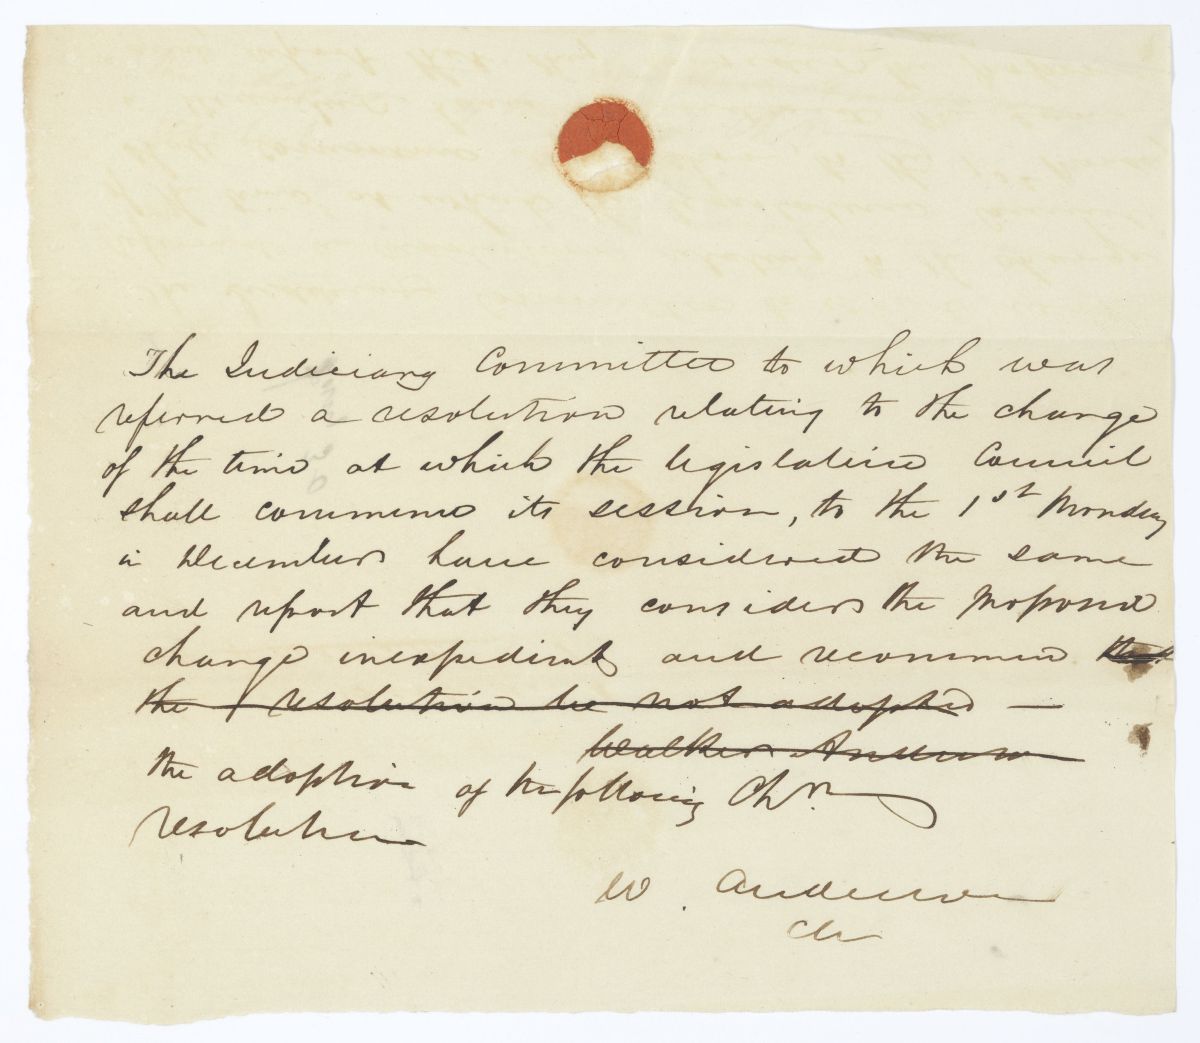 The Judiciary Committee to which was
referred a resolution relating to the change
of the time at which the legislative Council
shall commence its session, to the 1st Monday
in December have considered the same
and report that they consider the proposed
change inexpedient and recommend that
the resolution be not adopted —
Walker Anderson
the adoption of the following Chn.
resolution
W. Anderson
Ch